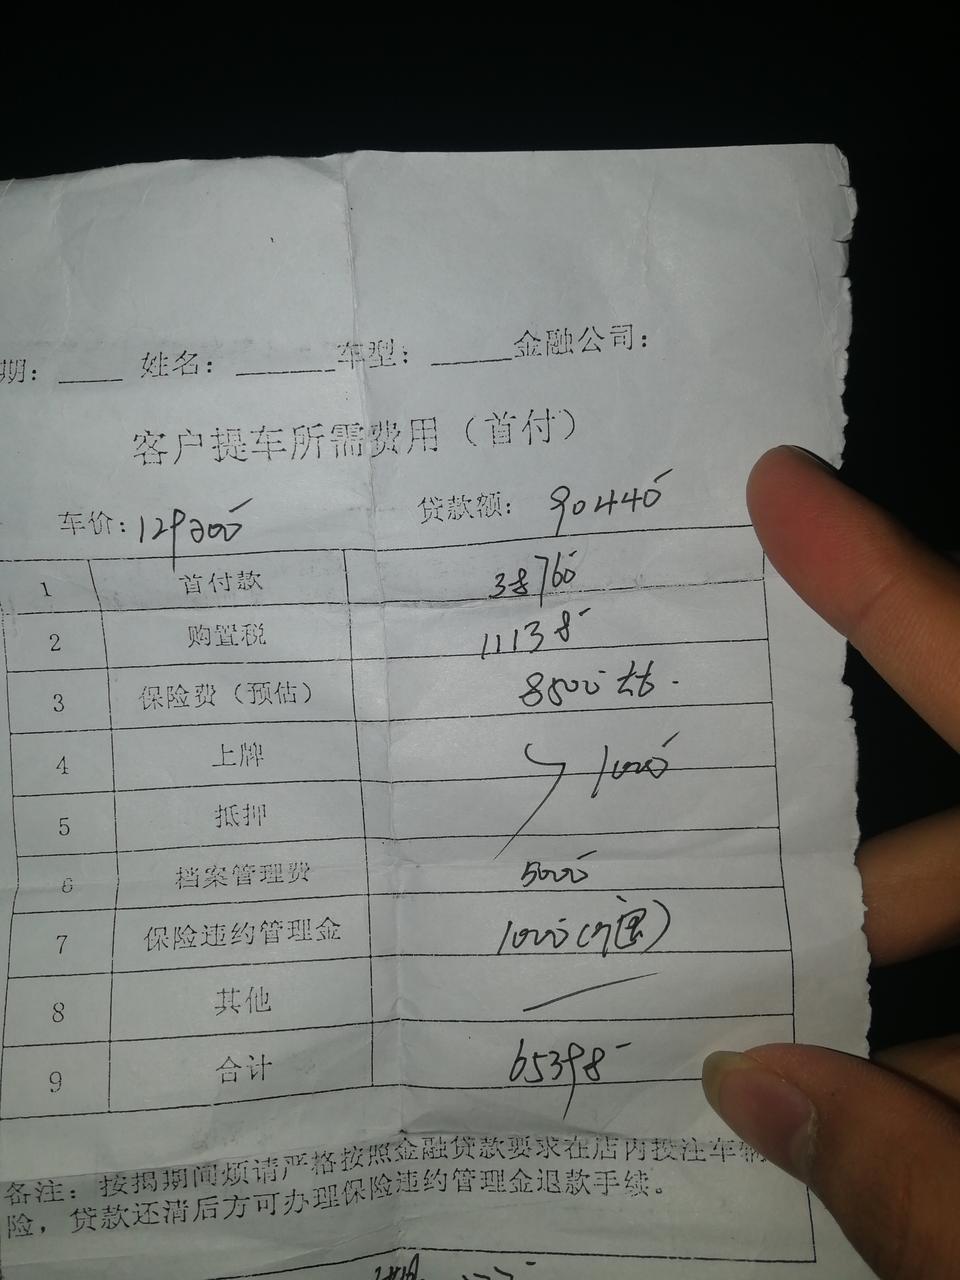 期：____ 姓名：______车型：_____金融公司：
客户提车所需费用（首付）
车价：129200 贷款额：90440
1 首付款 38760
2 购置税 11138
3 保险费（预估） 8500左右.
4 上牌 1000
5 抵押
6 档案管理费 5000
7 保险违约管理金 1000(可退)
8 其他 —
9 合计 65398
备注：按揭期间烦请严格按照金融贷款要求在店内投注车辆
险，贷款还清后方可办理保险违约管理金退款手续。